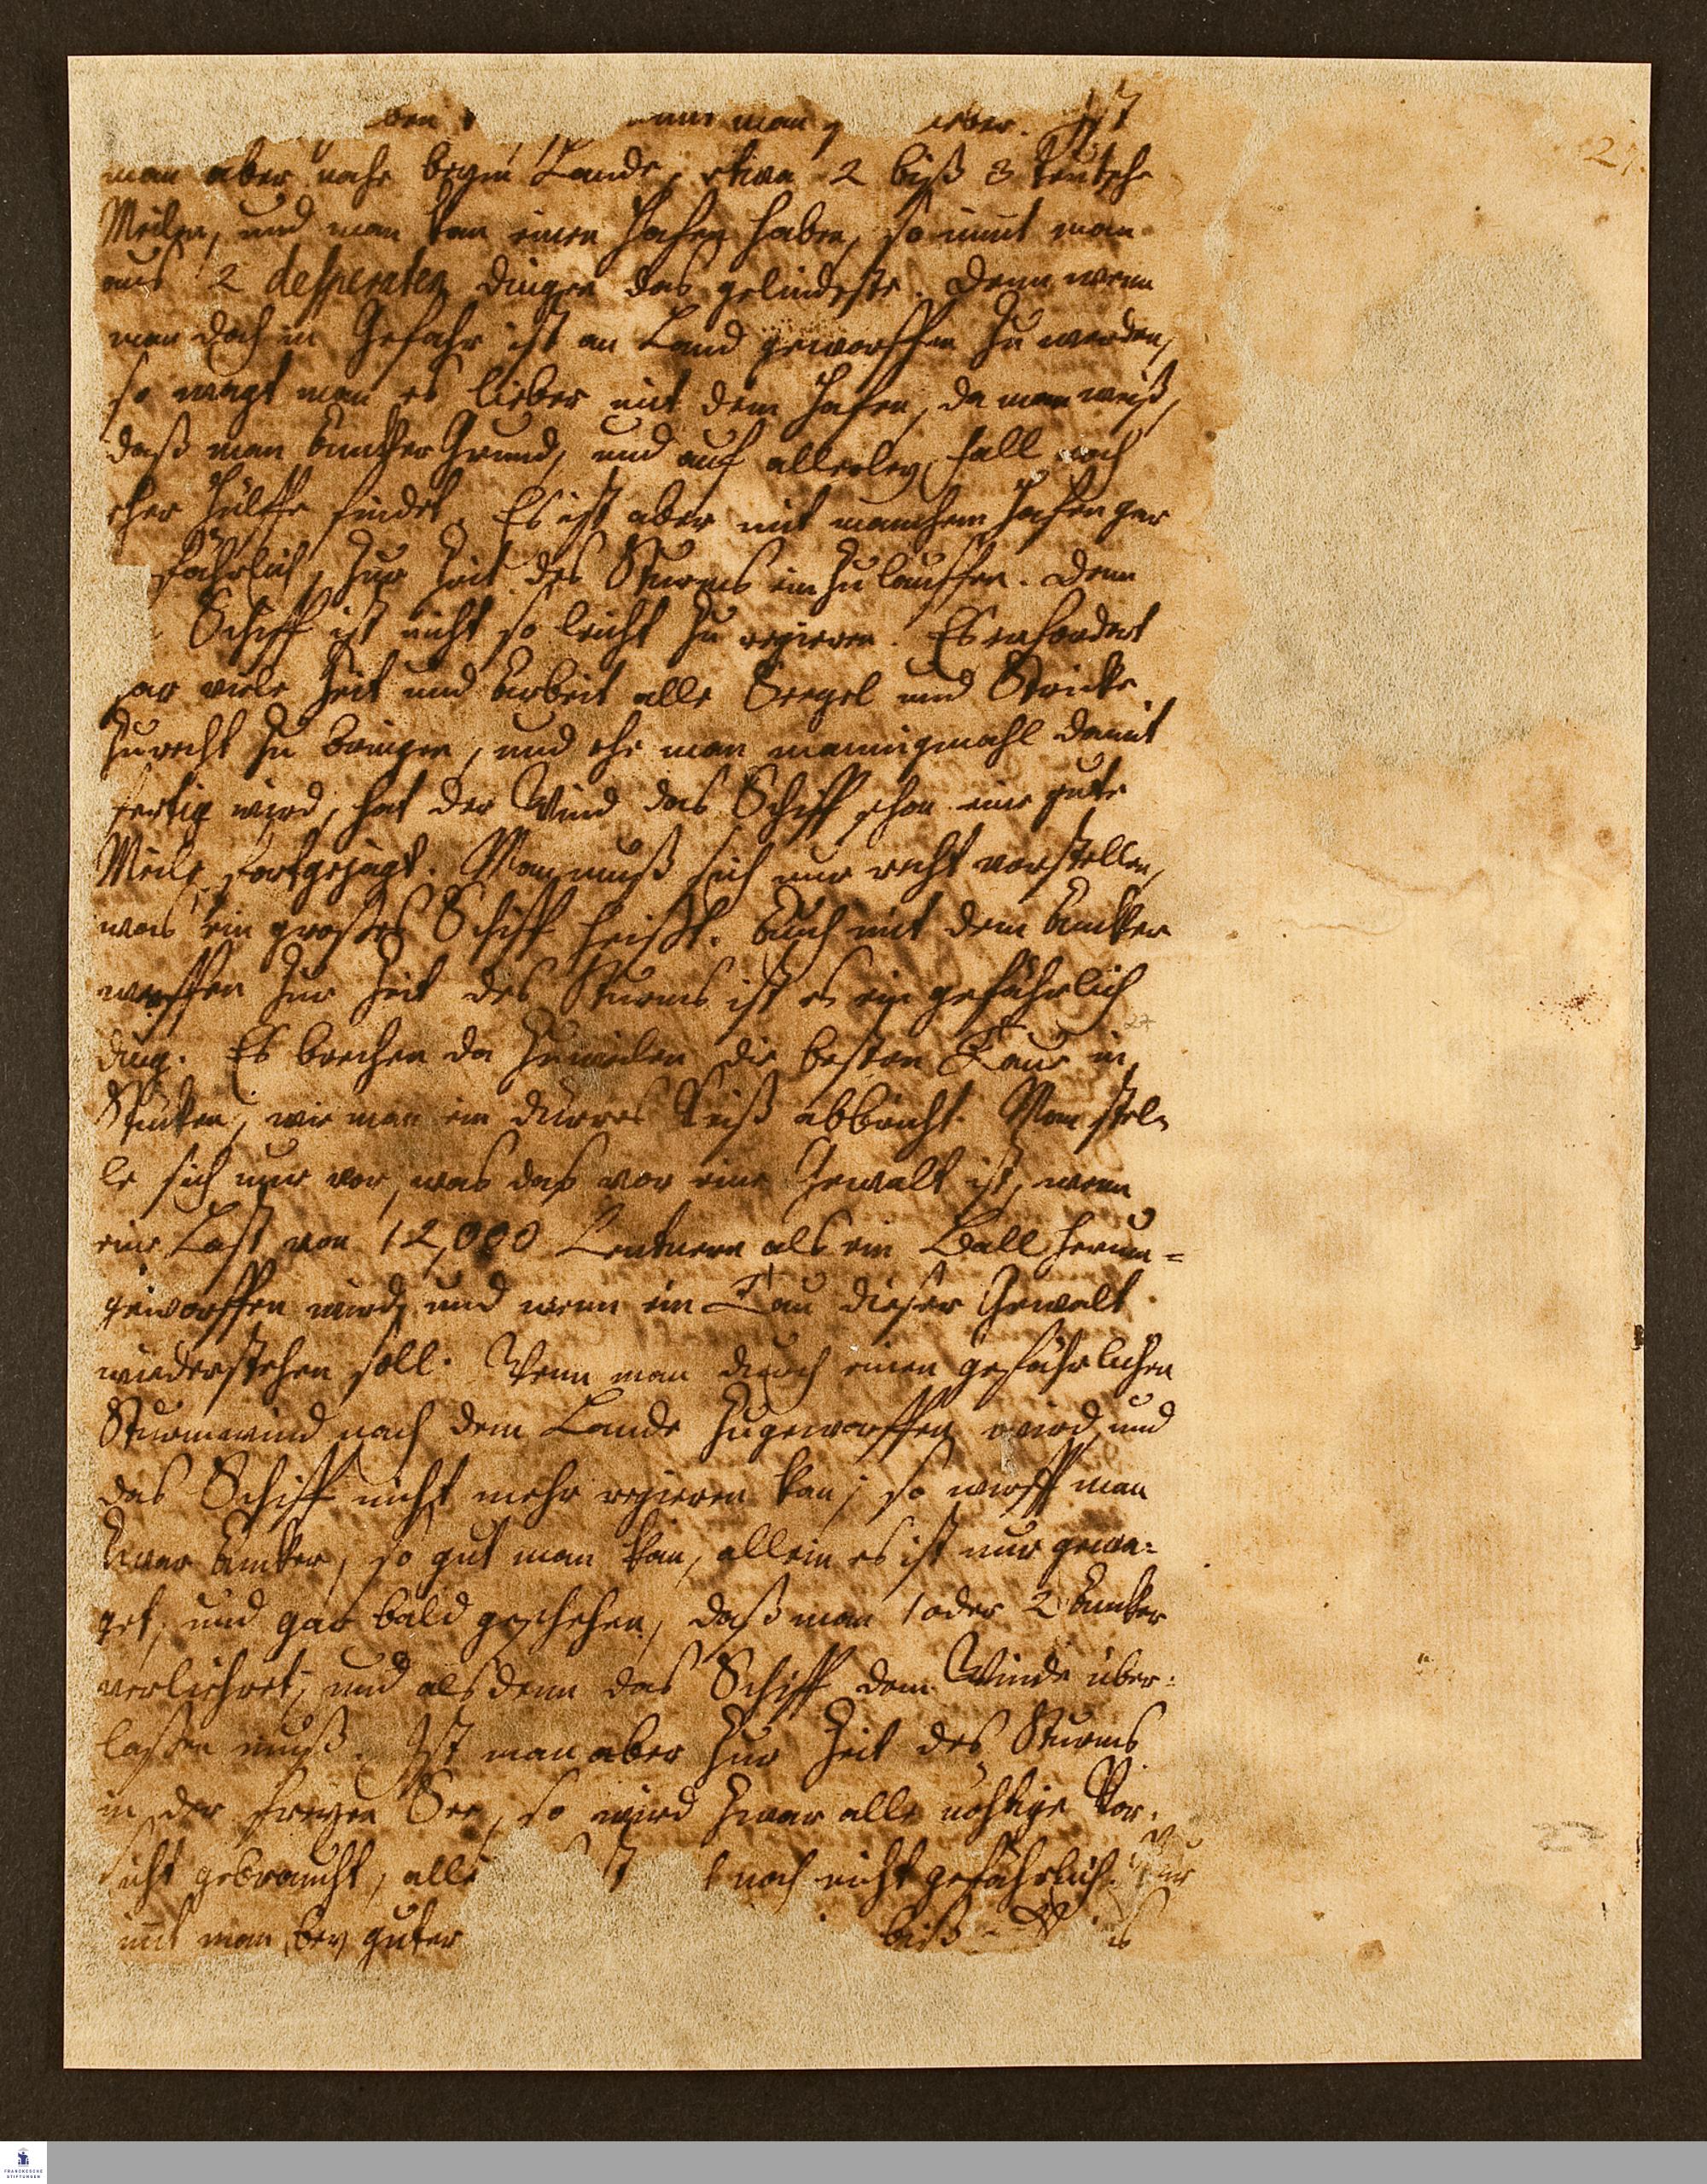 ben man Ist
man aber nahe beym Lande, etwa 2 biß 3 teutsche
Meilen, und man kan einen Hafen haben, so nimt man
aus 2 desperaten dingen das gelindeste. Denn wenn
man doch in Gefahr ist an Land geworffen zu werden,
so wagt man es lieber mit dem Hafen, da man weiß,
daß man Ancker Grund, und auf allerley Fall noch
eher Hülffe findet. Es ist aber mit manchem Hafen gar
fährlich, zur Zeit des Sturms einzulauffen. Denn
Schiff ist nicht so leicht zu regieren. Es erfordert
gar viele Zeit und Arbeit alle Seegel und Stricke
zurecht zu bringen, und ehe man mannigmahl damit
fertig wird, hat der Wind das Schiff schon eine gute
Meile fortgejagt. Man muß sich nur recht vorstellen,
was ein großes Schiff heißt. Auch mit dem Ancker
werffen zur Zeit des Sturms ist es ein gefährlich
27
ding. Es brechen da zuweilen die besten Taue in
Stücken, wie man ein dürres Reiß abbricht. Man stel-
le sich nur vor, was das vor eine Gewalt ist, wenn
eine Last von 12,000 Centnern als ein Ball herum=
geworffen wird, und wenn ein Tau dieser Gewalt
wiederstehen soll. Wenn man durch einen gefährlichen
Sturmwind nach dem Lande zugeworffen wird, und
das Schiff nicht mehr regieren kan, so wirfft man
zwar Ancker, so gut man kan, allein es ist nur gewa=
get, und gar bald geschehen, daß man 1 oder 2 Ancker
verliehret, und alsdenn das Schiff dem Winde über=
lassen muß. Ist man aber zur Zeit des Sturms
in der freyen See, so wird zwar alle nöhtige Vor-
sicht gebraucht, alle noch nicht gefährlich. Nur
nimt man bey guter biß
27
FRANCKESCHE
STIFTUNGEN